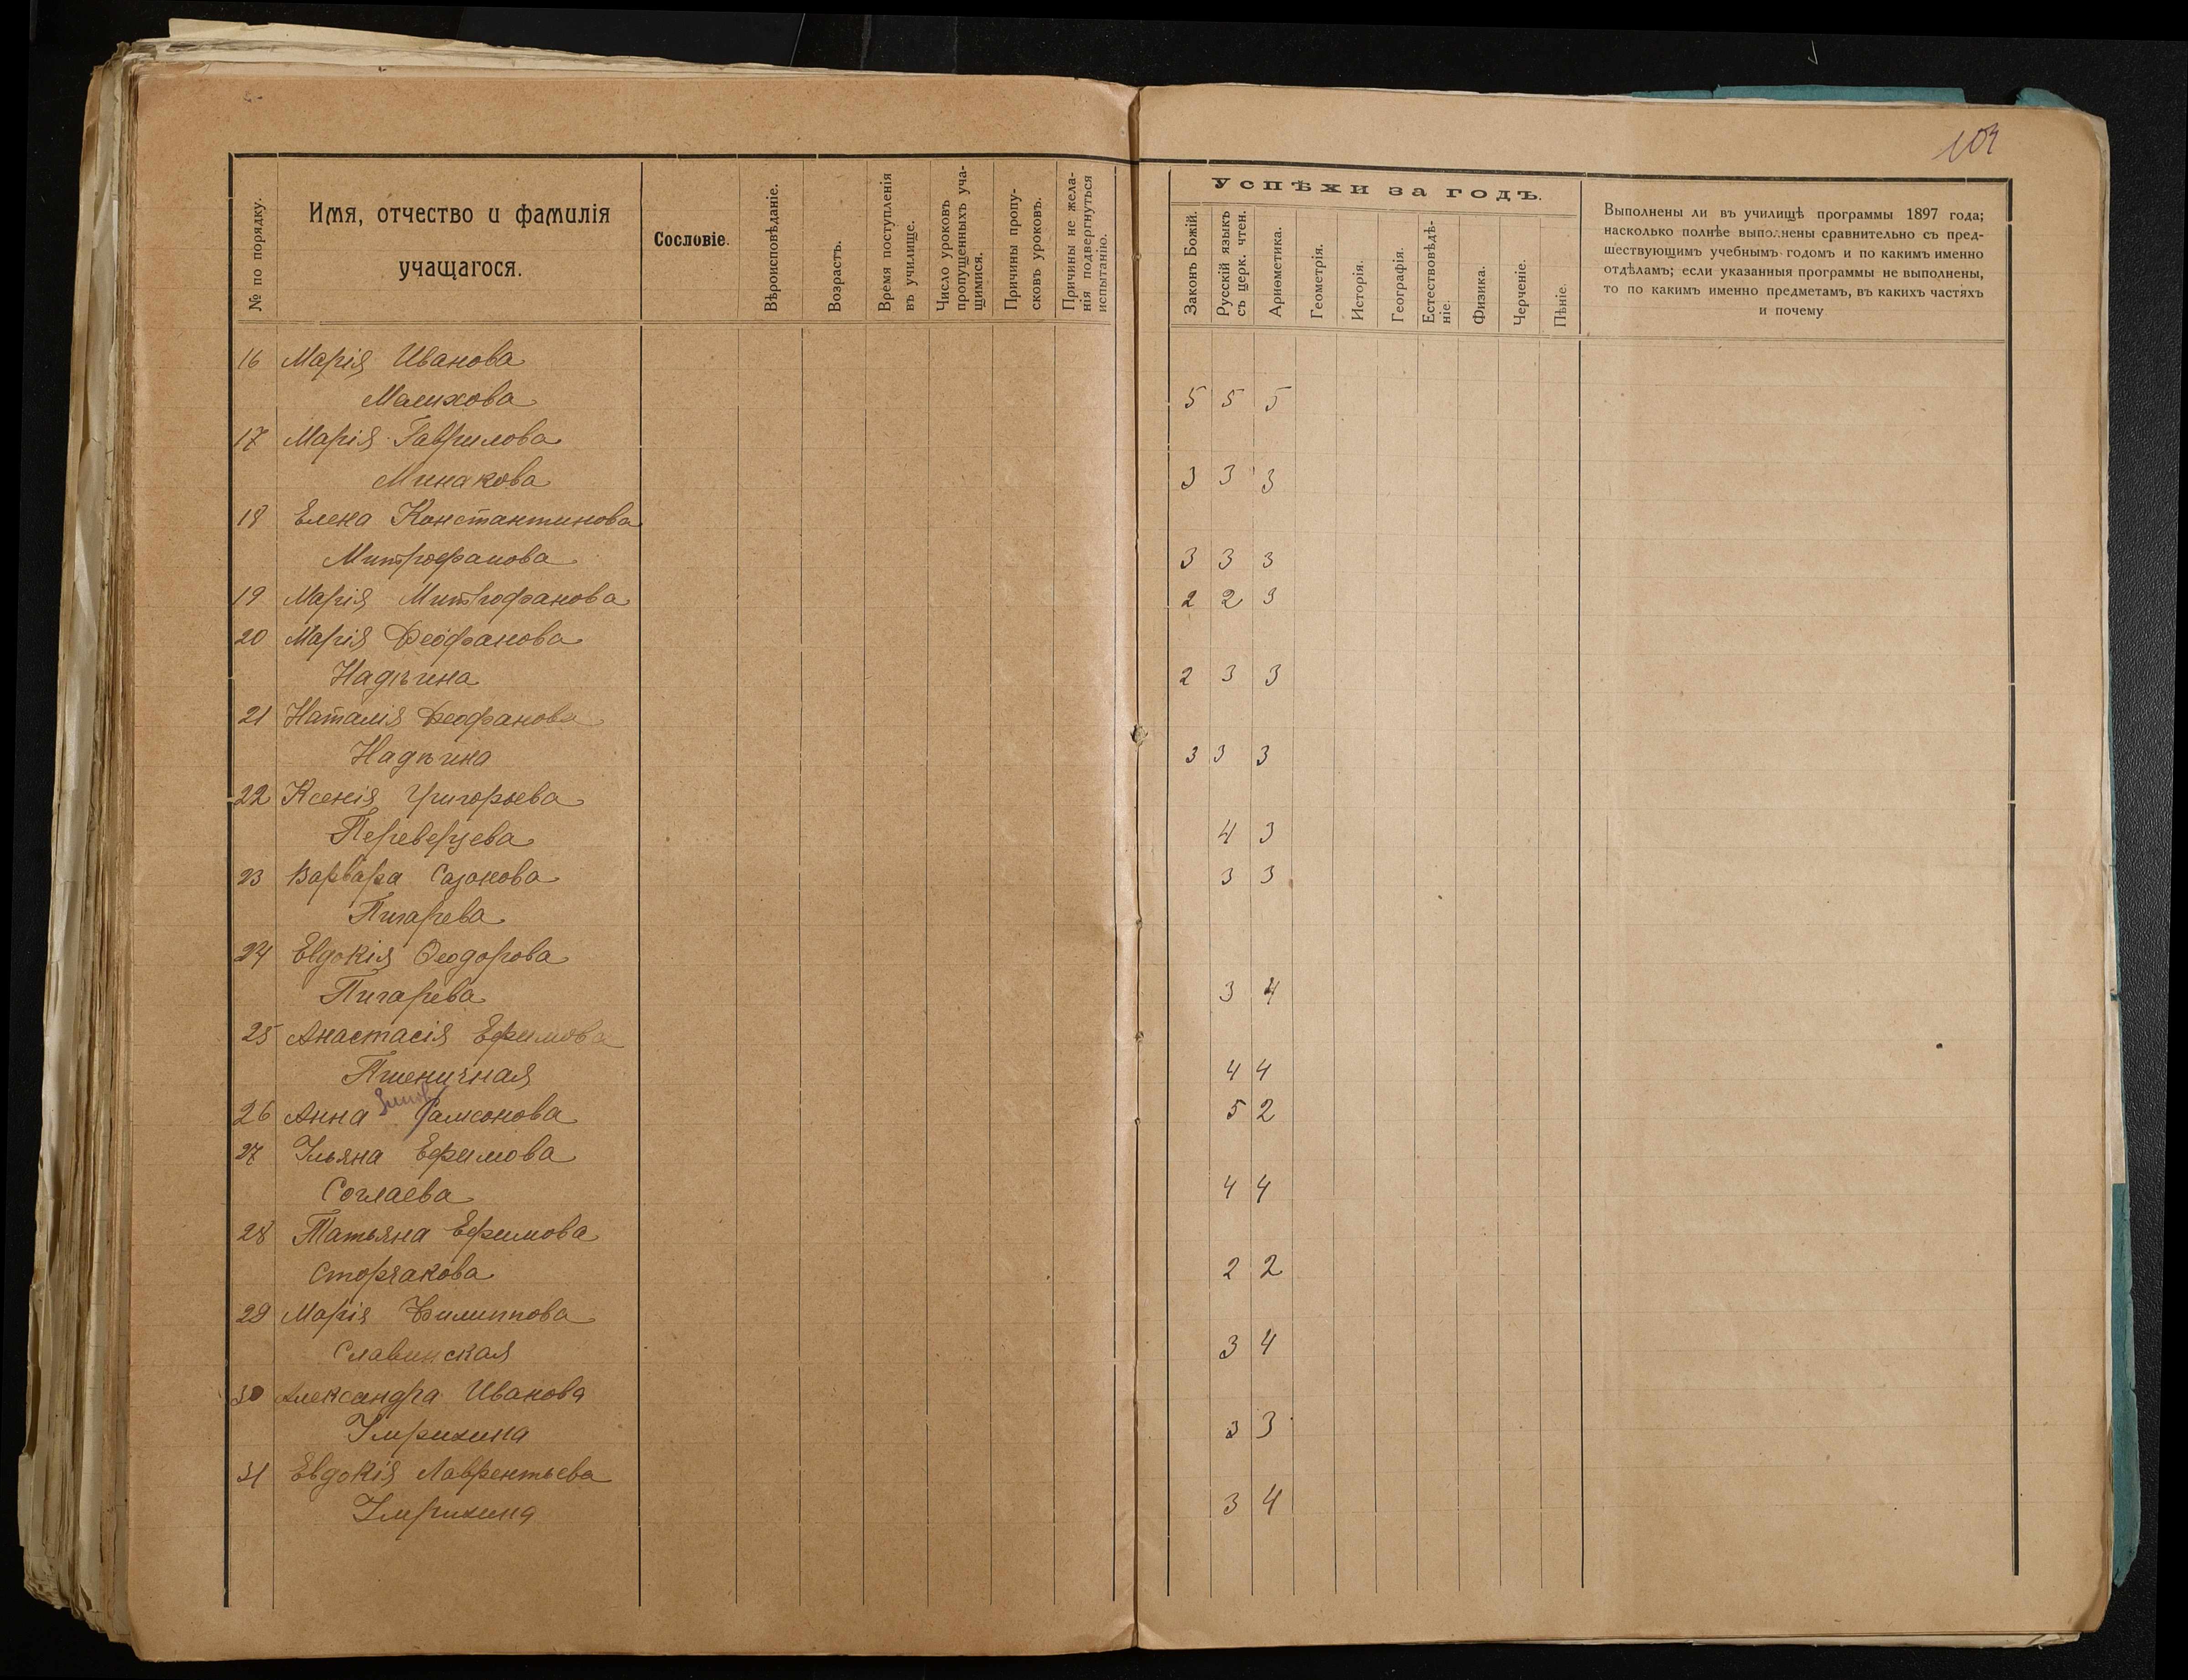 104
№ по порядку.
Имя, отчество и фамилія
учащагося.
Сословіе.
Вѣроисповѣданіе.
Возрастъ.
Время поступленія
въ училище.
Число уроковъ
пропущенныхъ уча-
щимися.
Причины пропу-
сковъ уроковъ.
Причины не жела-
нія подвергнуться
испытанію.
Успѣхи за годъ.
Законъ Божій.
Русскій языкъ
съ церк. чтен.
Ариѳметика.
Геометрія.
Исторія.
Географія.
Естествовѣдѣ-
ніе.
Физика.
Черченіе.
Пѣніе.
Выполнены ли въ училищѣ программы 1897 года;
насколько полнѣе выполнены сравнительно съ пред-
шествующимъ учебнымъ годомъ и по какимъ именно
отдѣламъ; если указанныя программы не выполнены,
то по какимъ именно предметамъ, въ какихъ частяхъ
и почему
16 Марія Иванова
Малихова 5 5 5
17 Марія Гаврилова
Минакова 3 3 3
18 Елена Константинова
Митрофанова 3 3 3
19 Марія Митрофанова 2 2 3
20 Марія Феофанова
Надѣина 2 3 3
21 Наталія Феофанова
Надѣина 3 3 3
22 Ксенія Григорьева
Переверзева 4 3
23 Варвара Сазонова 3 3
Пигарева
24 Евдокія Ѳеодорова
Пигарева 3 4
25 Анастасія Ефимова
Пшеничная 4 4
26 Анна Самсонова 5 2
27 Ульяна Ефимова
Соглаева 4 4
28 Татьяна Ефимова
Сторчакова 2 2
29 Марія Филиппова
Славинская 3 4
30 Александра Иванова
Умрихина 3 3
31 Евдокія Лаврентьева
Умрихина 3 4